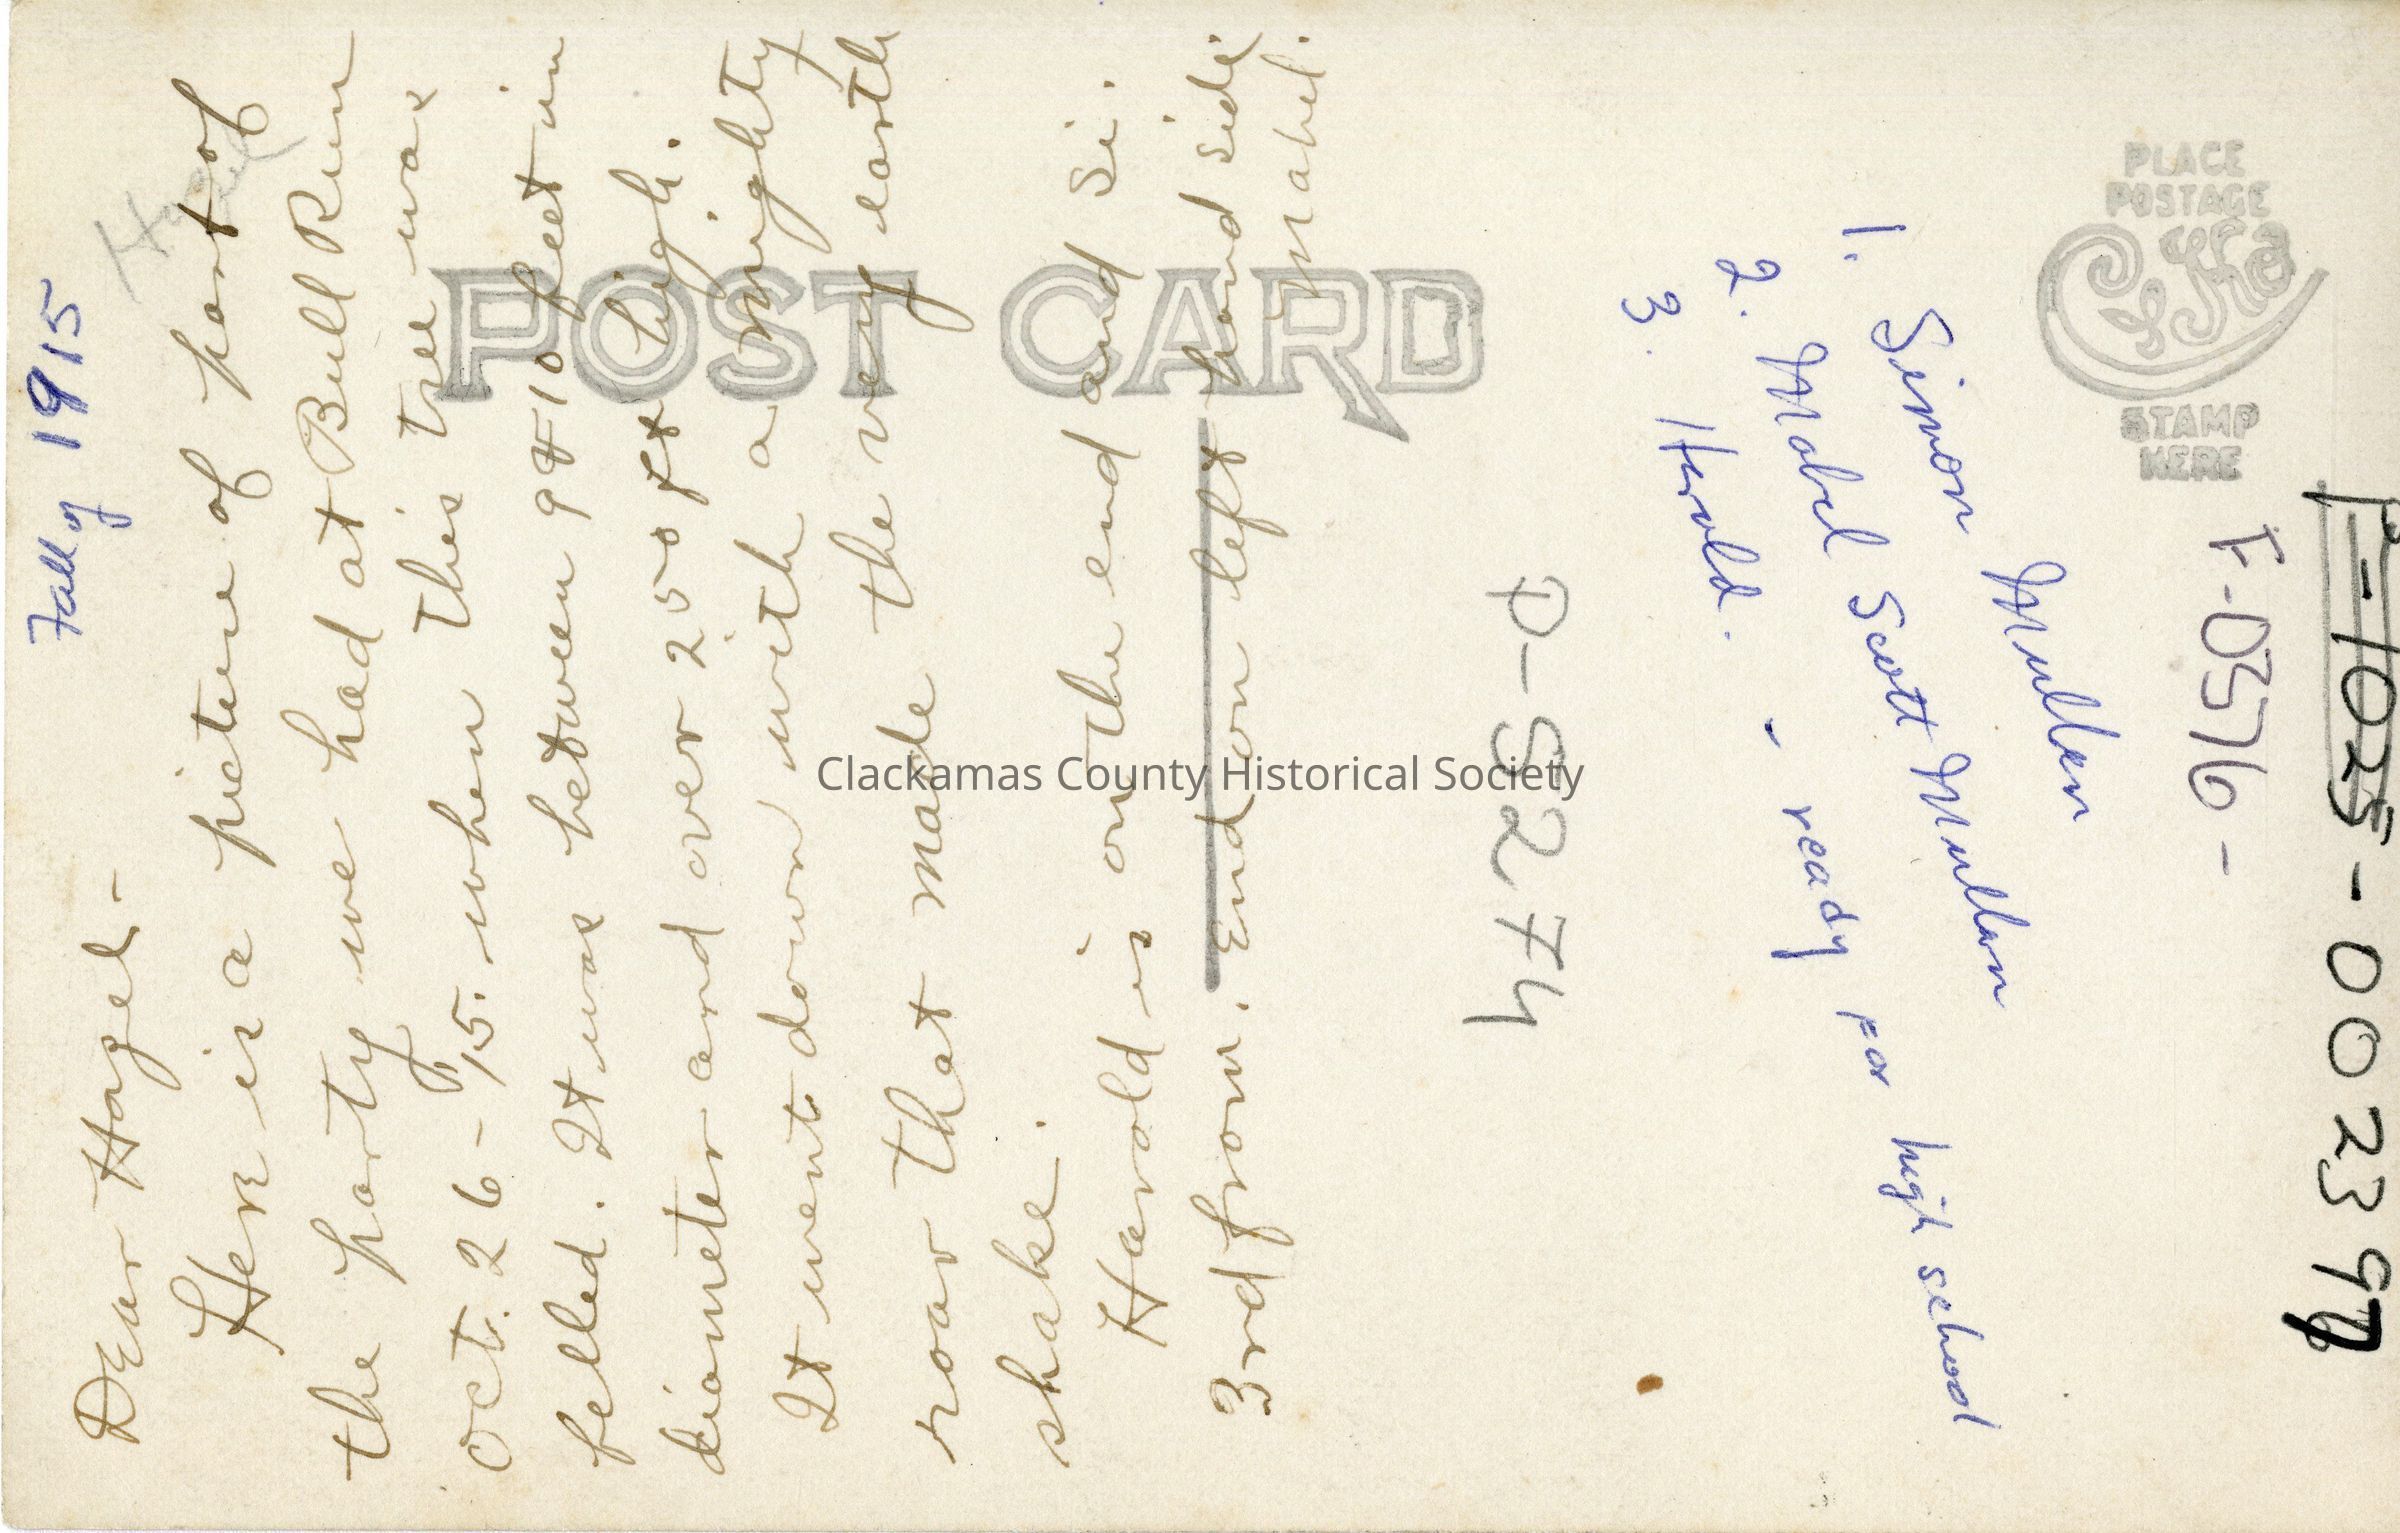 Fall of 1915
Dear Hazel-
Here is a picture of part of
the party we had at Bull Run
Oct. 26-15. when this tree was
felled. It was between 9 & 10 feet in
diameter and over 250 ft high.
It went down with a mighty
roar that made the very earth
shake.
Harold is on the end and Si.
3rd from. End on left hand side
Mabel.
POST CARD
PLACE
POSTAGE
STAMP
HERE
1. Simon Mullan
2. Mabel Scott Mullan
3. Harold. - ready for high school
P-9274
P-D376-
P-1025-002397
Clackamas County Historical Society